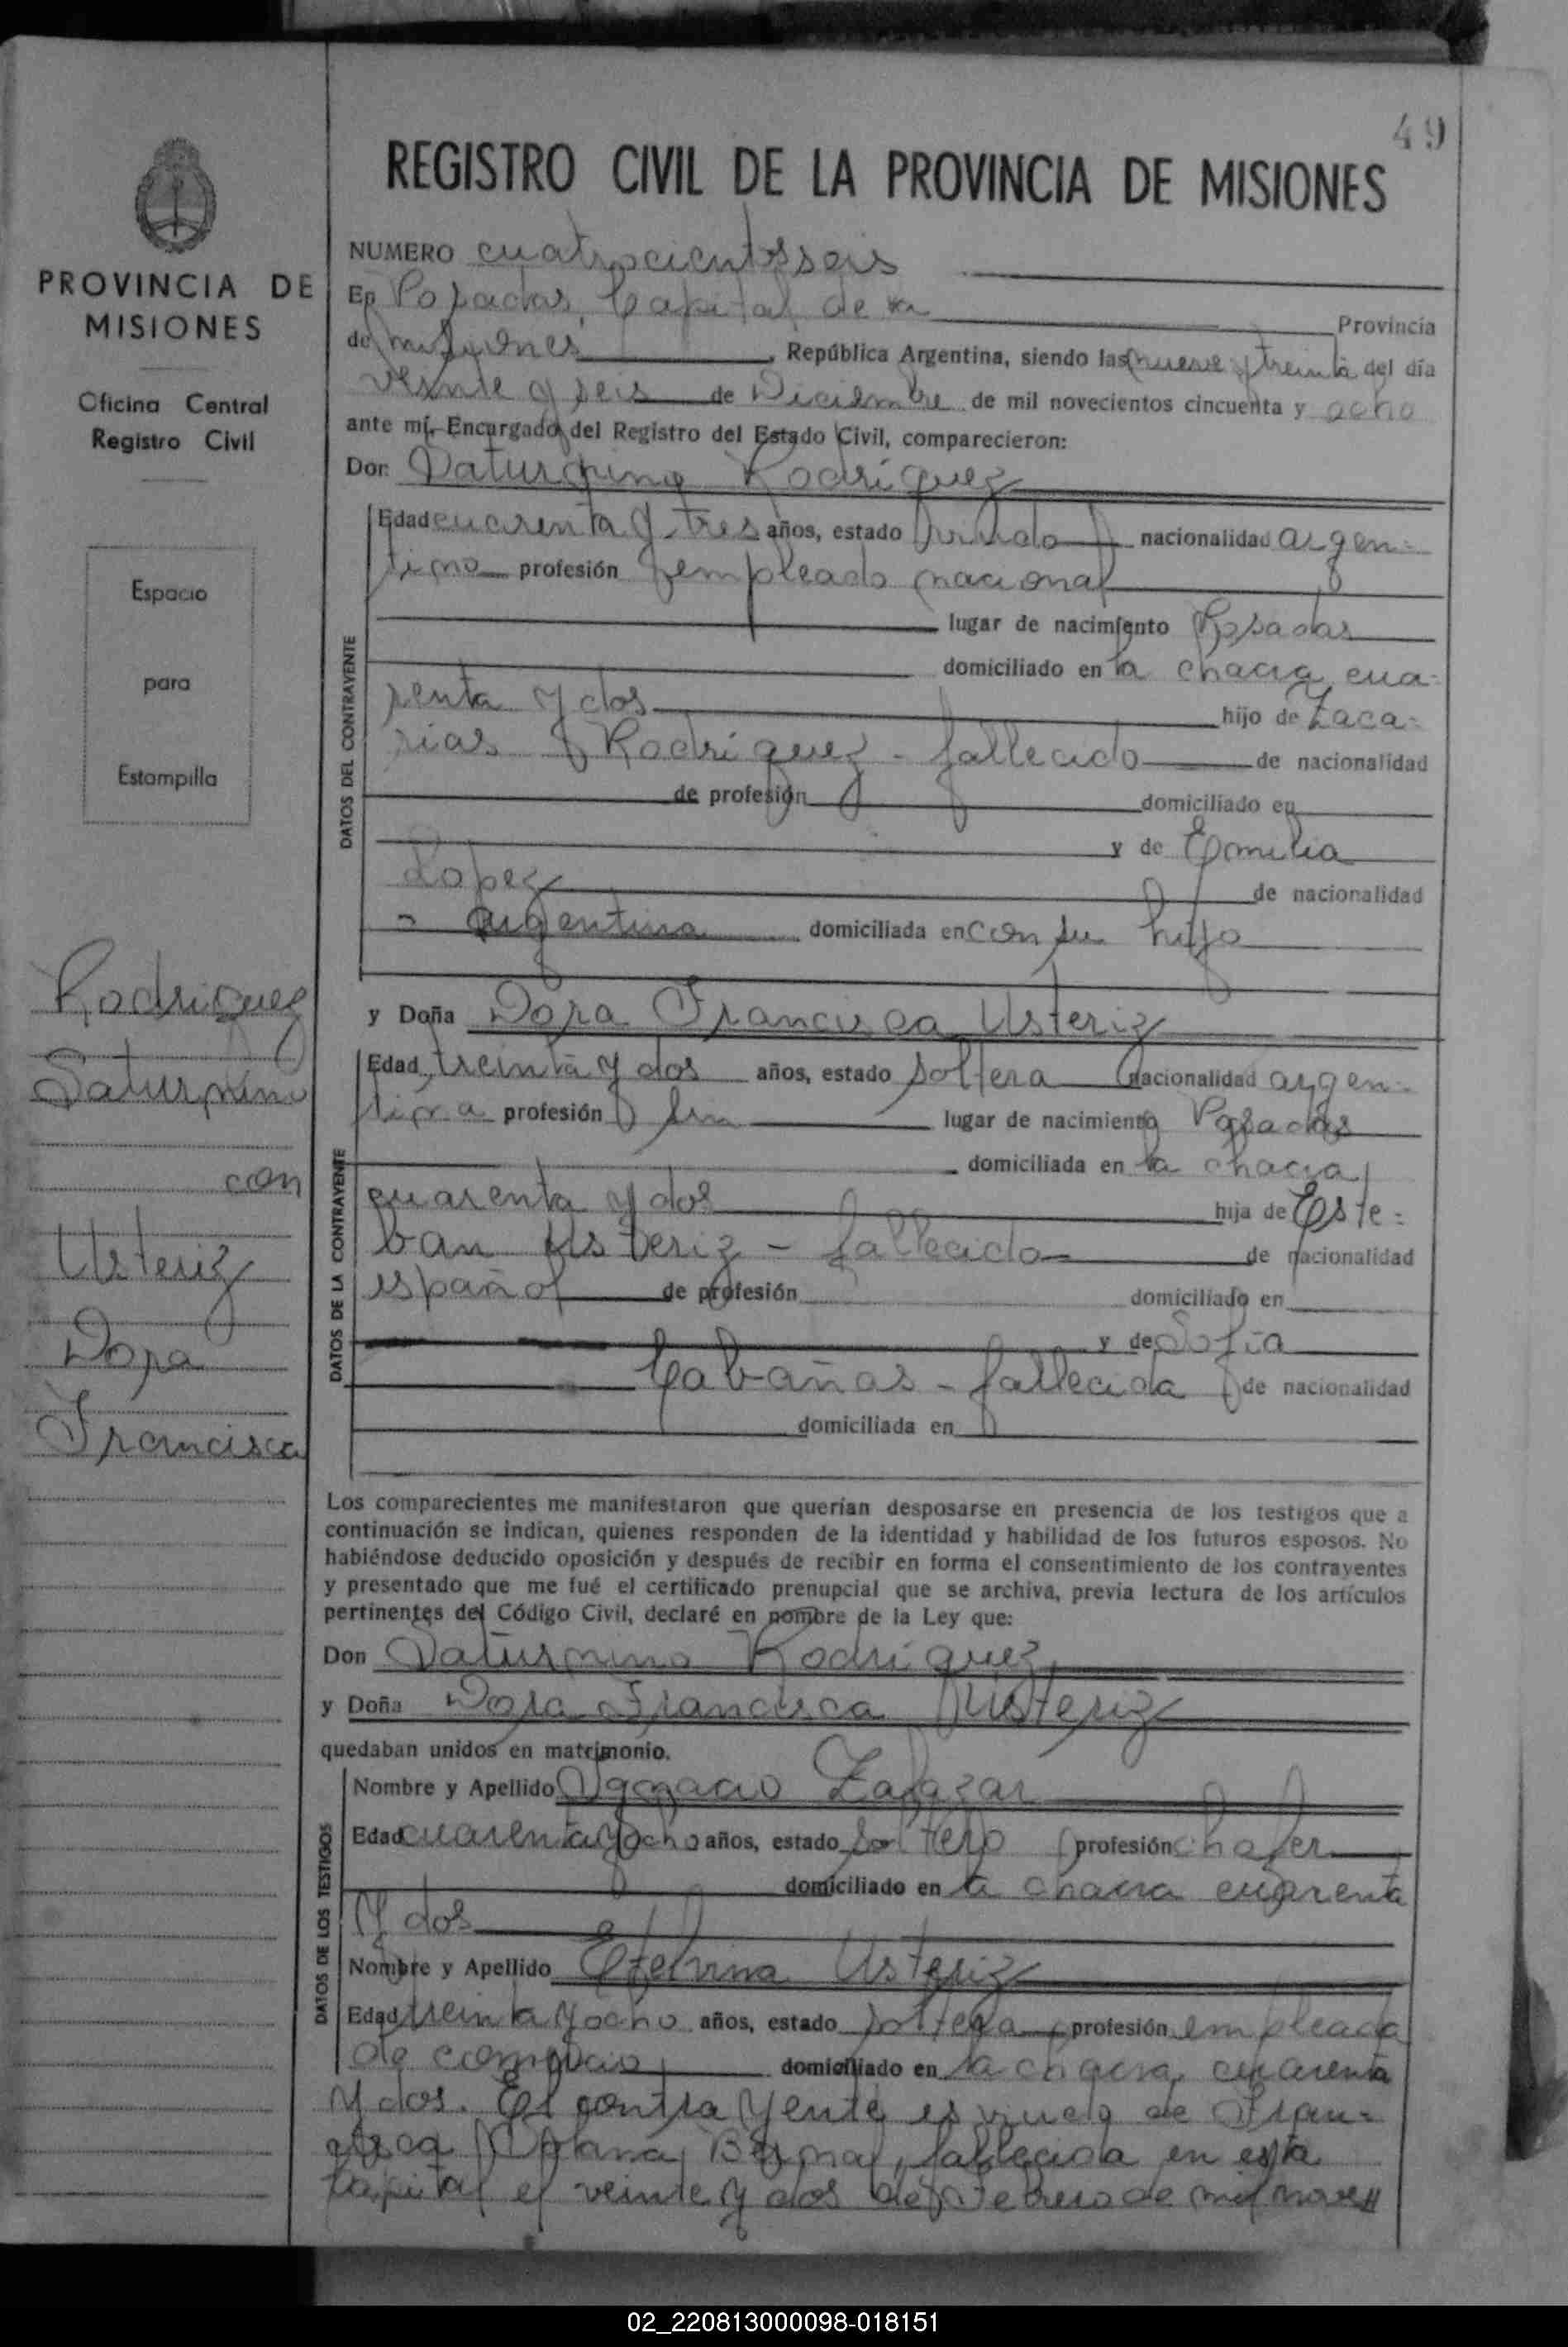 49
REGISTRO CIVIL DE LA PROVINCIA DE MISIONES
PROVINCIA DE
MISIONES
Oficina Central
Registro Civil
Espacio
para
Estampilla
Rodriguez
Saturnino
con
Usteriz
Dora
Francisca
NUMERO cuatrocientos seis
En Posadas, Capital de la Provincia
de Misiones, República Argentina, siendo las nueve y treinta del día
veinte y seis de Diciembre de mil novecientos cincuenta y ocho
ante mí, Encargado del Registro del Estado Civil, comparecieron:
Don Saturnino Rodriguez
DATOS DEL CONTRAYENTE
Edad cuarenta y tres años, estado viudo nacionalidad argen-
tino profesión empleado nacional
lugar de nacimiento Posadas
domiciliado en la chacra cua-
renta y dos hijo de Zaca-
rias Rodriguez - fallecido de nacionalidad
de profesión domiciliado en
y de Emilia
Lopez de nacionalidad
- argentina domiciliada en con su hijo
y Doña Dora Francisca Usteriz
DATOS DE LA CONTRAYENTE
Edad treinta y dos años, estado soltera nacionalidad argen-
tina profesión sin lugar de nacimiento Posadas
domiciliada en la chacra
cuarenta y dos hija de Este-
ban Usteriz - fallecido de nacionalidad
español de profesión domiciliado en
y de Sofia
Cabañas - fallecida de nacionalidad
domiciliada en
Los comparecientes me manifestaron que querían desposarse en presencia de los testigos que a
continuación se indican, quienes responden de la identidad y habilidad de los futuros esposos. No
habiéndose deducido oposición y después de recibir en forma el consentimiento de los contrayentes
y presentado que me fué el certificado prenupcial que se archiva, previa lectura de los artículos
pertinentes del Código Civil, declaré en nombre de la Ley que:
Don Saturnino Rodriguez
y Doña Dora Francisca Usteriz
quedaban unidos en matrimonio.
DATOS DE LOS TESTIGOS
Nombre y Apellido Ignacio Zalazar
Edad cuarenta y ocho años, estado soltero profesión chofer
domiciliado en la chacra cuarenta
y dos
Nombre y Apellido Etelvina Usteriz
Edad treinta y ocho años, estado soltera profesión empleada
de comercio domiciliado en la chacra cuarenta
y dos. El contrayente es viudo de Fran-
cisca Bernal, fallecida en esta
Capital el veinte y dos de Febrero de mil nove//
02_220813000098-018151